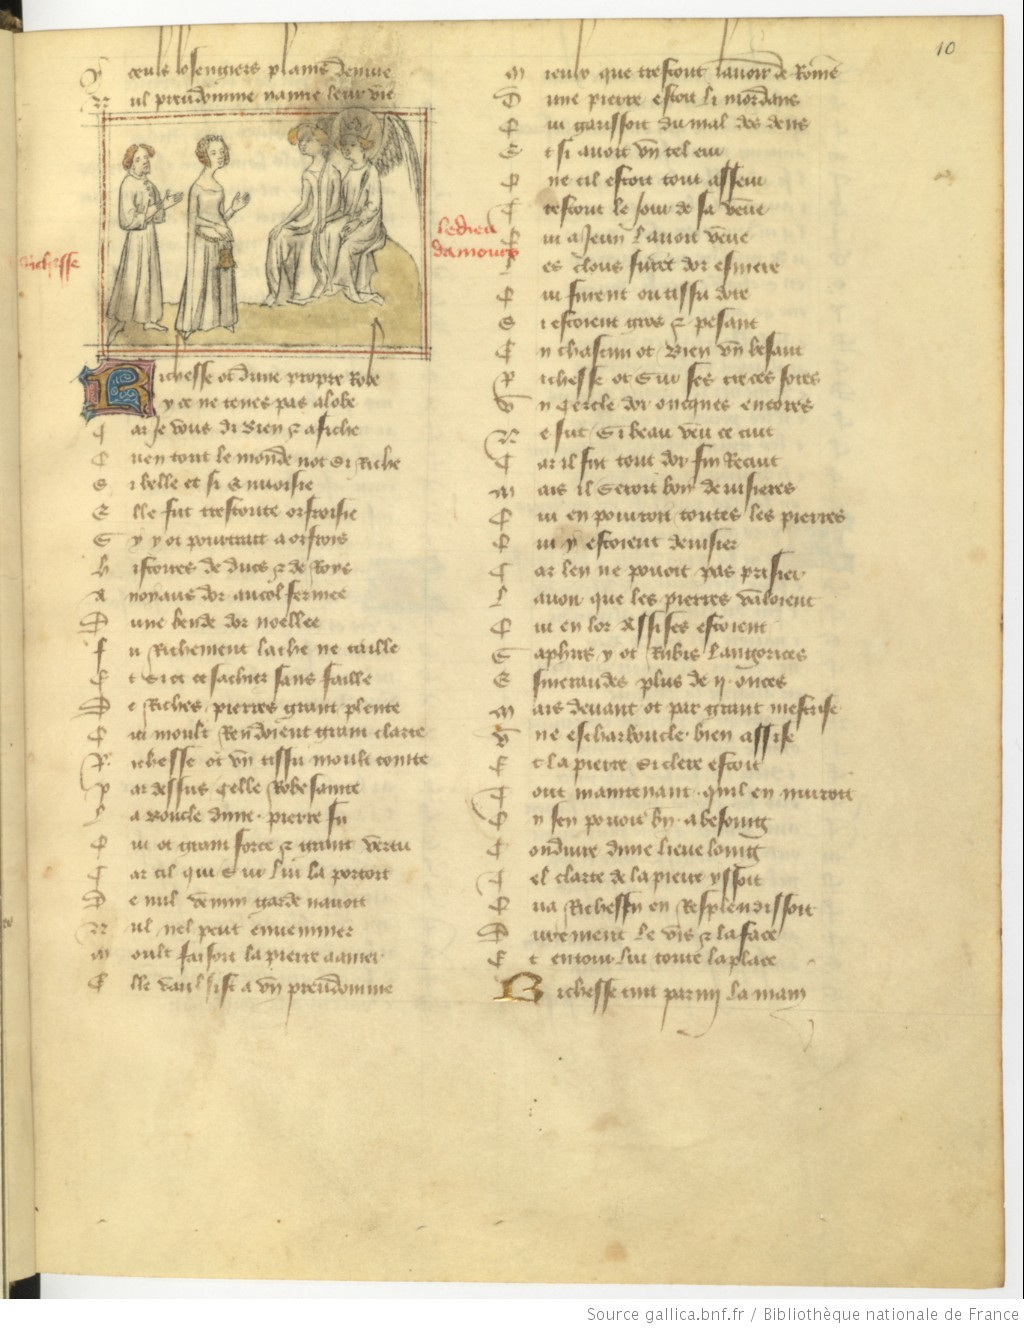 10
ceuls losengiers plains denvie
Nul preudomme namme leur vie
Richesse
le dieu
damours
Richesse ot dune propre Robe
y ce ne tenes pas a lobe
Car je vous di bien & afiche
Quen tout le monde not si Riche
Si belle et si envoisie
Elle fut trestoute orfroisie
Sy y ot pourtrait a orfrois
Histoires de ducs & de Roys
A noyaus dor au col fermee
Dune bende dor noellee
Fu Richement la che ne taille
Et si ot ce sachiez sans faille
De Riches pierres grant plente
Qui moult Rendoient grant clarte
Richesse ot vn tissu moult cointe
Par dessus celle Robe sainte
La boucle dune pierre fu
Qui ot grant force & grant vertu
Car cil qui sur lui la portoit
De nul venin garde navoit
Nul nel peut envenimer
Moult faisoit la pierre a amer
Elle vaulsist a vn preudomme
Mieulx que trestout lavoir de Romme
Dune pierre estoit li mordans
Qui garissoit du mal des dens
Et si avoit vn tel eur
Que cil estoit tout asseur
Trestout le jour de sa veue
Qui a jeun lavoit veue
Les clous furent dor esmere
Qui furent ou tissu dore
Si estoient gros & pesant
En chascun ot bien vn besant
Richesse ot sur ses treces sores
Vn cercle dor oncques encores
Ne fut si beau veu ce cuit
Car il fut tout dor fin Recuit
Mais il seroit bon devisieres
Qui en pourroit toutes les pierres
Qui y estoient devisier
Car len ne pouoit pas prisier
Lavoir que les pierres valoient
Qui en lor assises estoient
Saphirs y ot Rubis Langorices
Esmeraudes plus de ij onces
Mais devant ot par grant mestrise
Vne escharboucle bien assise
Et la pierre si clere estoit
Tout maintenant quil en nuitoit
En sen pouoit bn a besoing
Conduire dune lieue loing
Tel clarte de la pierre yssoit
Qua Richesse en Resplendissoit
Durement le vis & la face
Et entour lui toute la place
Richesse tint parmy la main
Source gallica.bnf.fr / Bibliothèque nationale de France